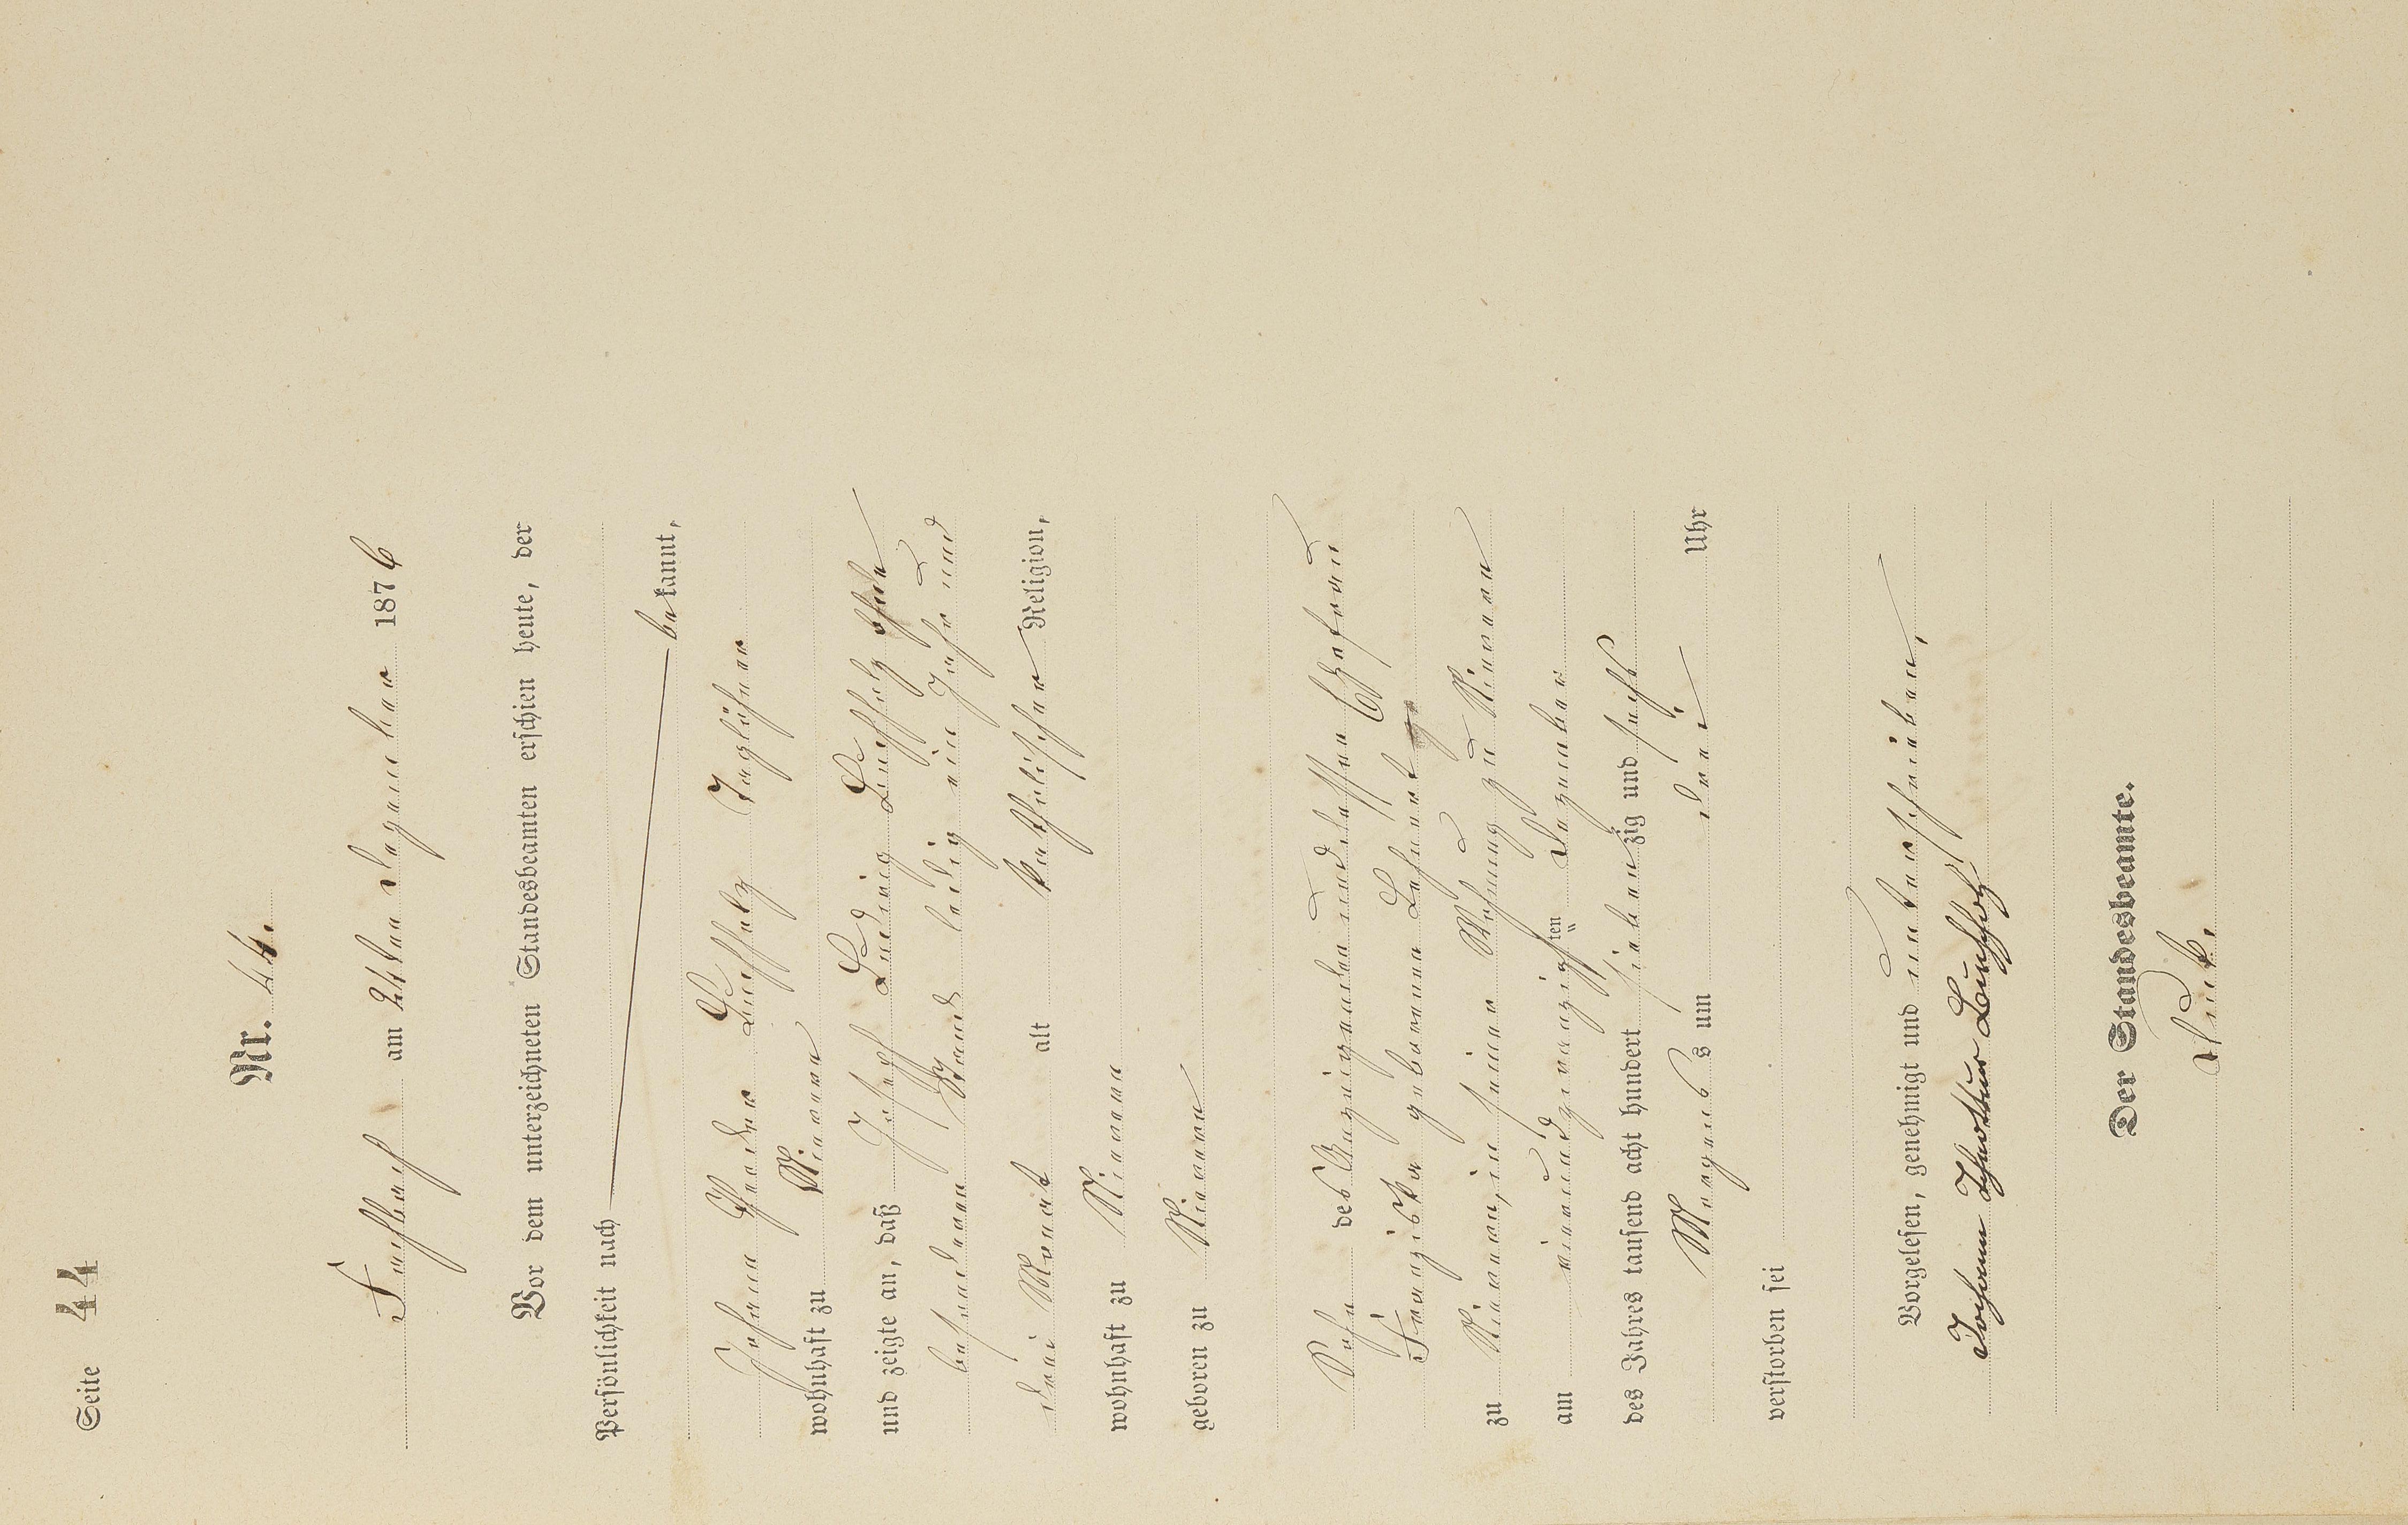 Seite 44
Nr. 44.
Fachbach am 24ten Dezember 1876
Vor dem unterzeichneten Standesbeamten erschien heute, der
Persönlichkeit nach
bekannt,
Johann Peter Buchholz Taglöhner
wohnhaft zu Nievern
und zeigte an, daß Josef Ludwig Buchholz ohne
besonderen Stand ledig ein Jahr und
drei Monat alt katholischer Religion,
wohnhaft zu Nievern
geboren zu Nievern
Sohn des Anzeigenden und dessen Ehefrau
Franziska geborenen Lehnert
zu Nievern, in seiner Wohnung zu Nievern
am vierundzwanzigsten Dezember
des Jahres tausend acht hundert siebenzig und sechs
Morgens um drei Uhr
verstorben sei
Vorgelesen, genehmigt und unterschrieben,
Johann Buchholz
Der Standesbeamte.